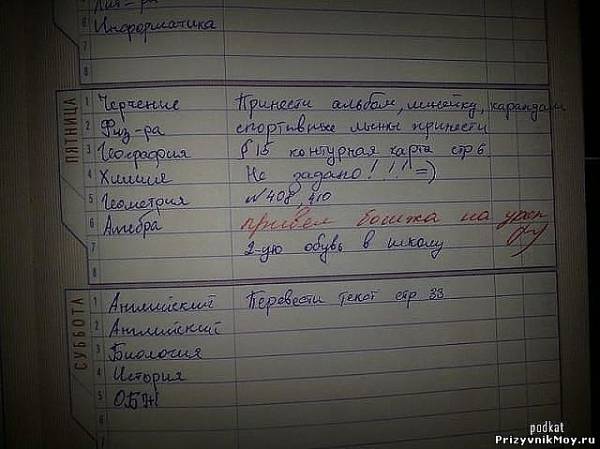 6 Информатика
7
8
ПЯТНИЦА
1 Черчение Принести альбом, линейку, карандаш
2 Физ-ра спортивные лыжи принести
3 География § 15 контурная карта стр 6
4 Химия Не задано!!!! =)
5 Геометрия №408, 410
6 Алгебра привел бомжа на урок
7 2-ую обувь в школу
8
СУББОТА
1 Английский Перевести текст стр 33
2 Английский
3 Биология
4 История
5 ОБЖ
podkat
PrizyvnikMoy.ru